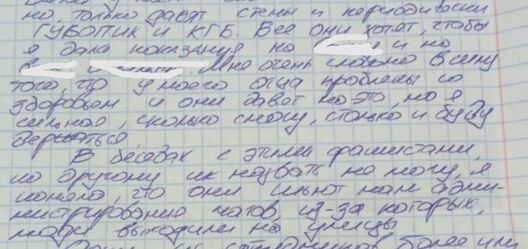 но, только давят стены и периодически
ГУБОПИК и КГБ. Все они хотят, чтобы
я дала показания на и на
Мне очень сложно в силу
того, что у моего отца проблемы со
здоровьем и они давят на это, но я
сильная, сколько смогу, столько и буду
держаться.
В беседах с этими фашистами,
по другому их назвать не могу, я
поняла, что они шьют нам адми-
нистрирование чатов, из-за которых,
люди выходили на улицы.
более